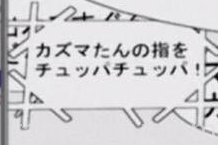 カズマたんの指を
チュッパチュッパ!